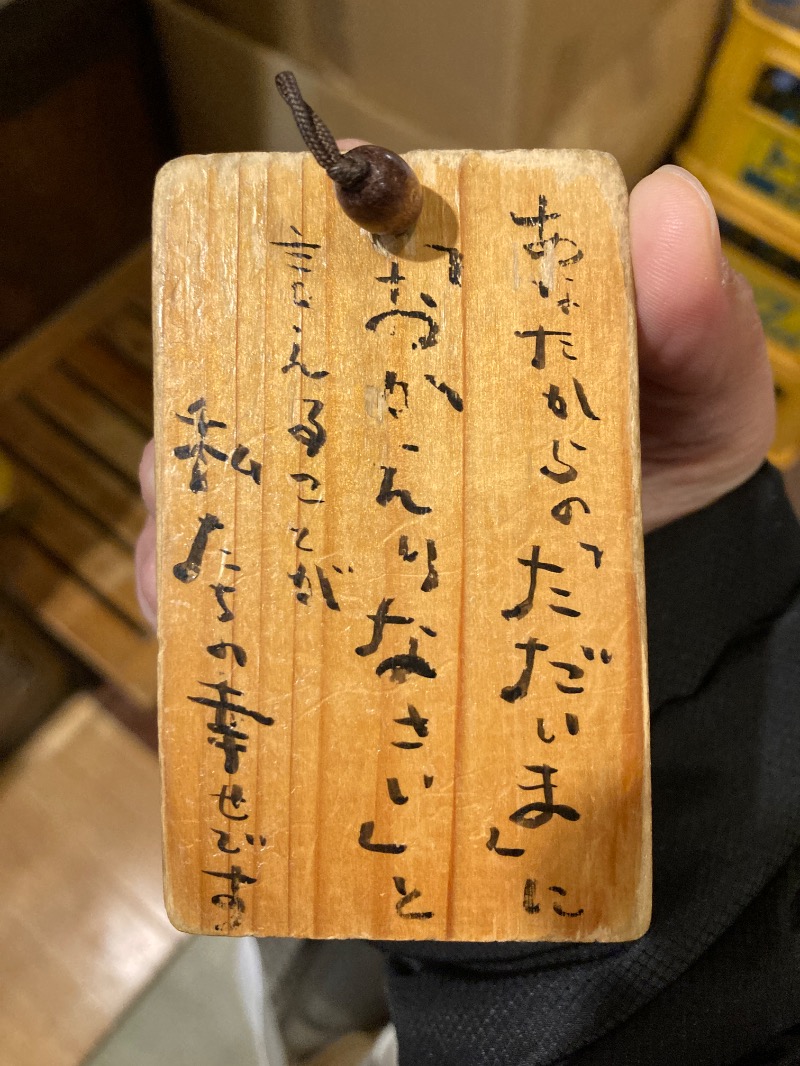 あなたからの「ただいま」に
「おかえりなさい」と
言えることが
私たちの幸せです。